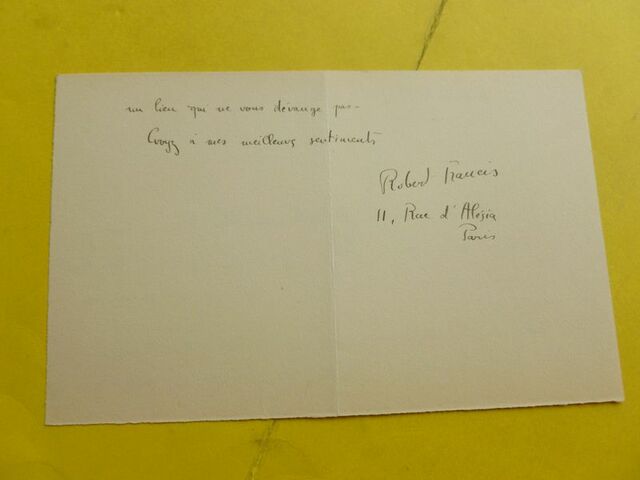 un lieu qui ne vous dérange pas -
Croyez à mes meilleurs sentiments
Robert Francis
11, Rue d'Alésia
Paris